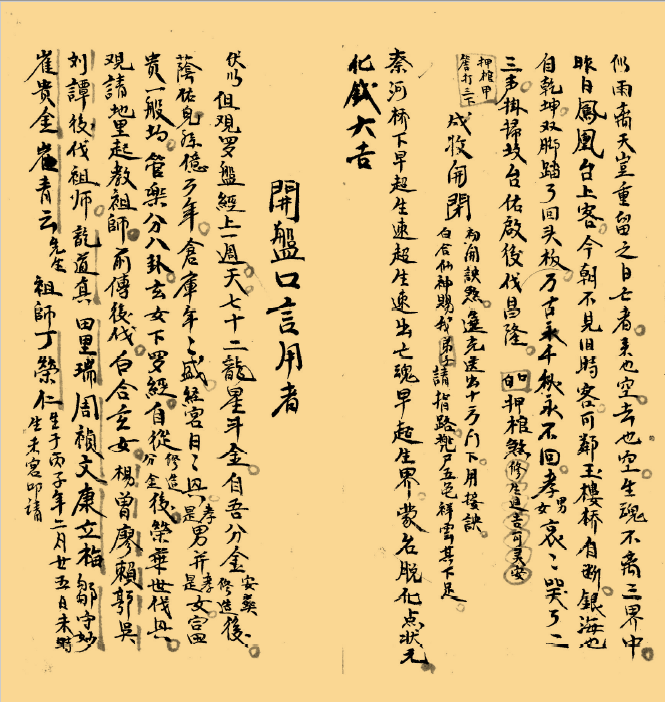 似雨离天堂重留之日亡者来也空去也空生魂不离三界中
昨日鳳凰台上客今朝不見旧時客可鄰玉樓桥有断銀海也
自乾坤双脚踏了回头板万古永千秋永不回孝男女哀哀哭了二
三声掛掃坟台佑啟後伐昌隆
押棺煞
押棺甲
管打三下
成收用閉
白合仙神賜我弟子請指路
秦河桥下早超生速超生速出亡魂早超生界蒙名脱化点状元
化錢大吉
開盤口言用者
伏以但观罗盤經上一週天七十二龍星斗金自吾分金安葬修造後
蔭佑兒孫億万年倉庫年年盛經宮日日興是孝男并是孝女富田
貴一般均管樂分八卦玄女下罗經自從修造分金後榮華世伐興
观請地里起教祖師前傳後伐白合玄女楊曾廖賴郭吳
刘譚後伐祖师龍道真田里瑞周禎文康立梅鄒守妙
崔貴金崔青云先生祖師丁榮仁生于丙子年二月廿五日未時
生未宮叩請